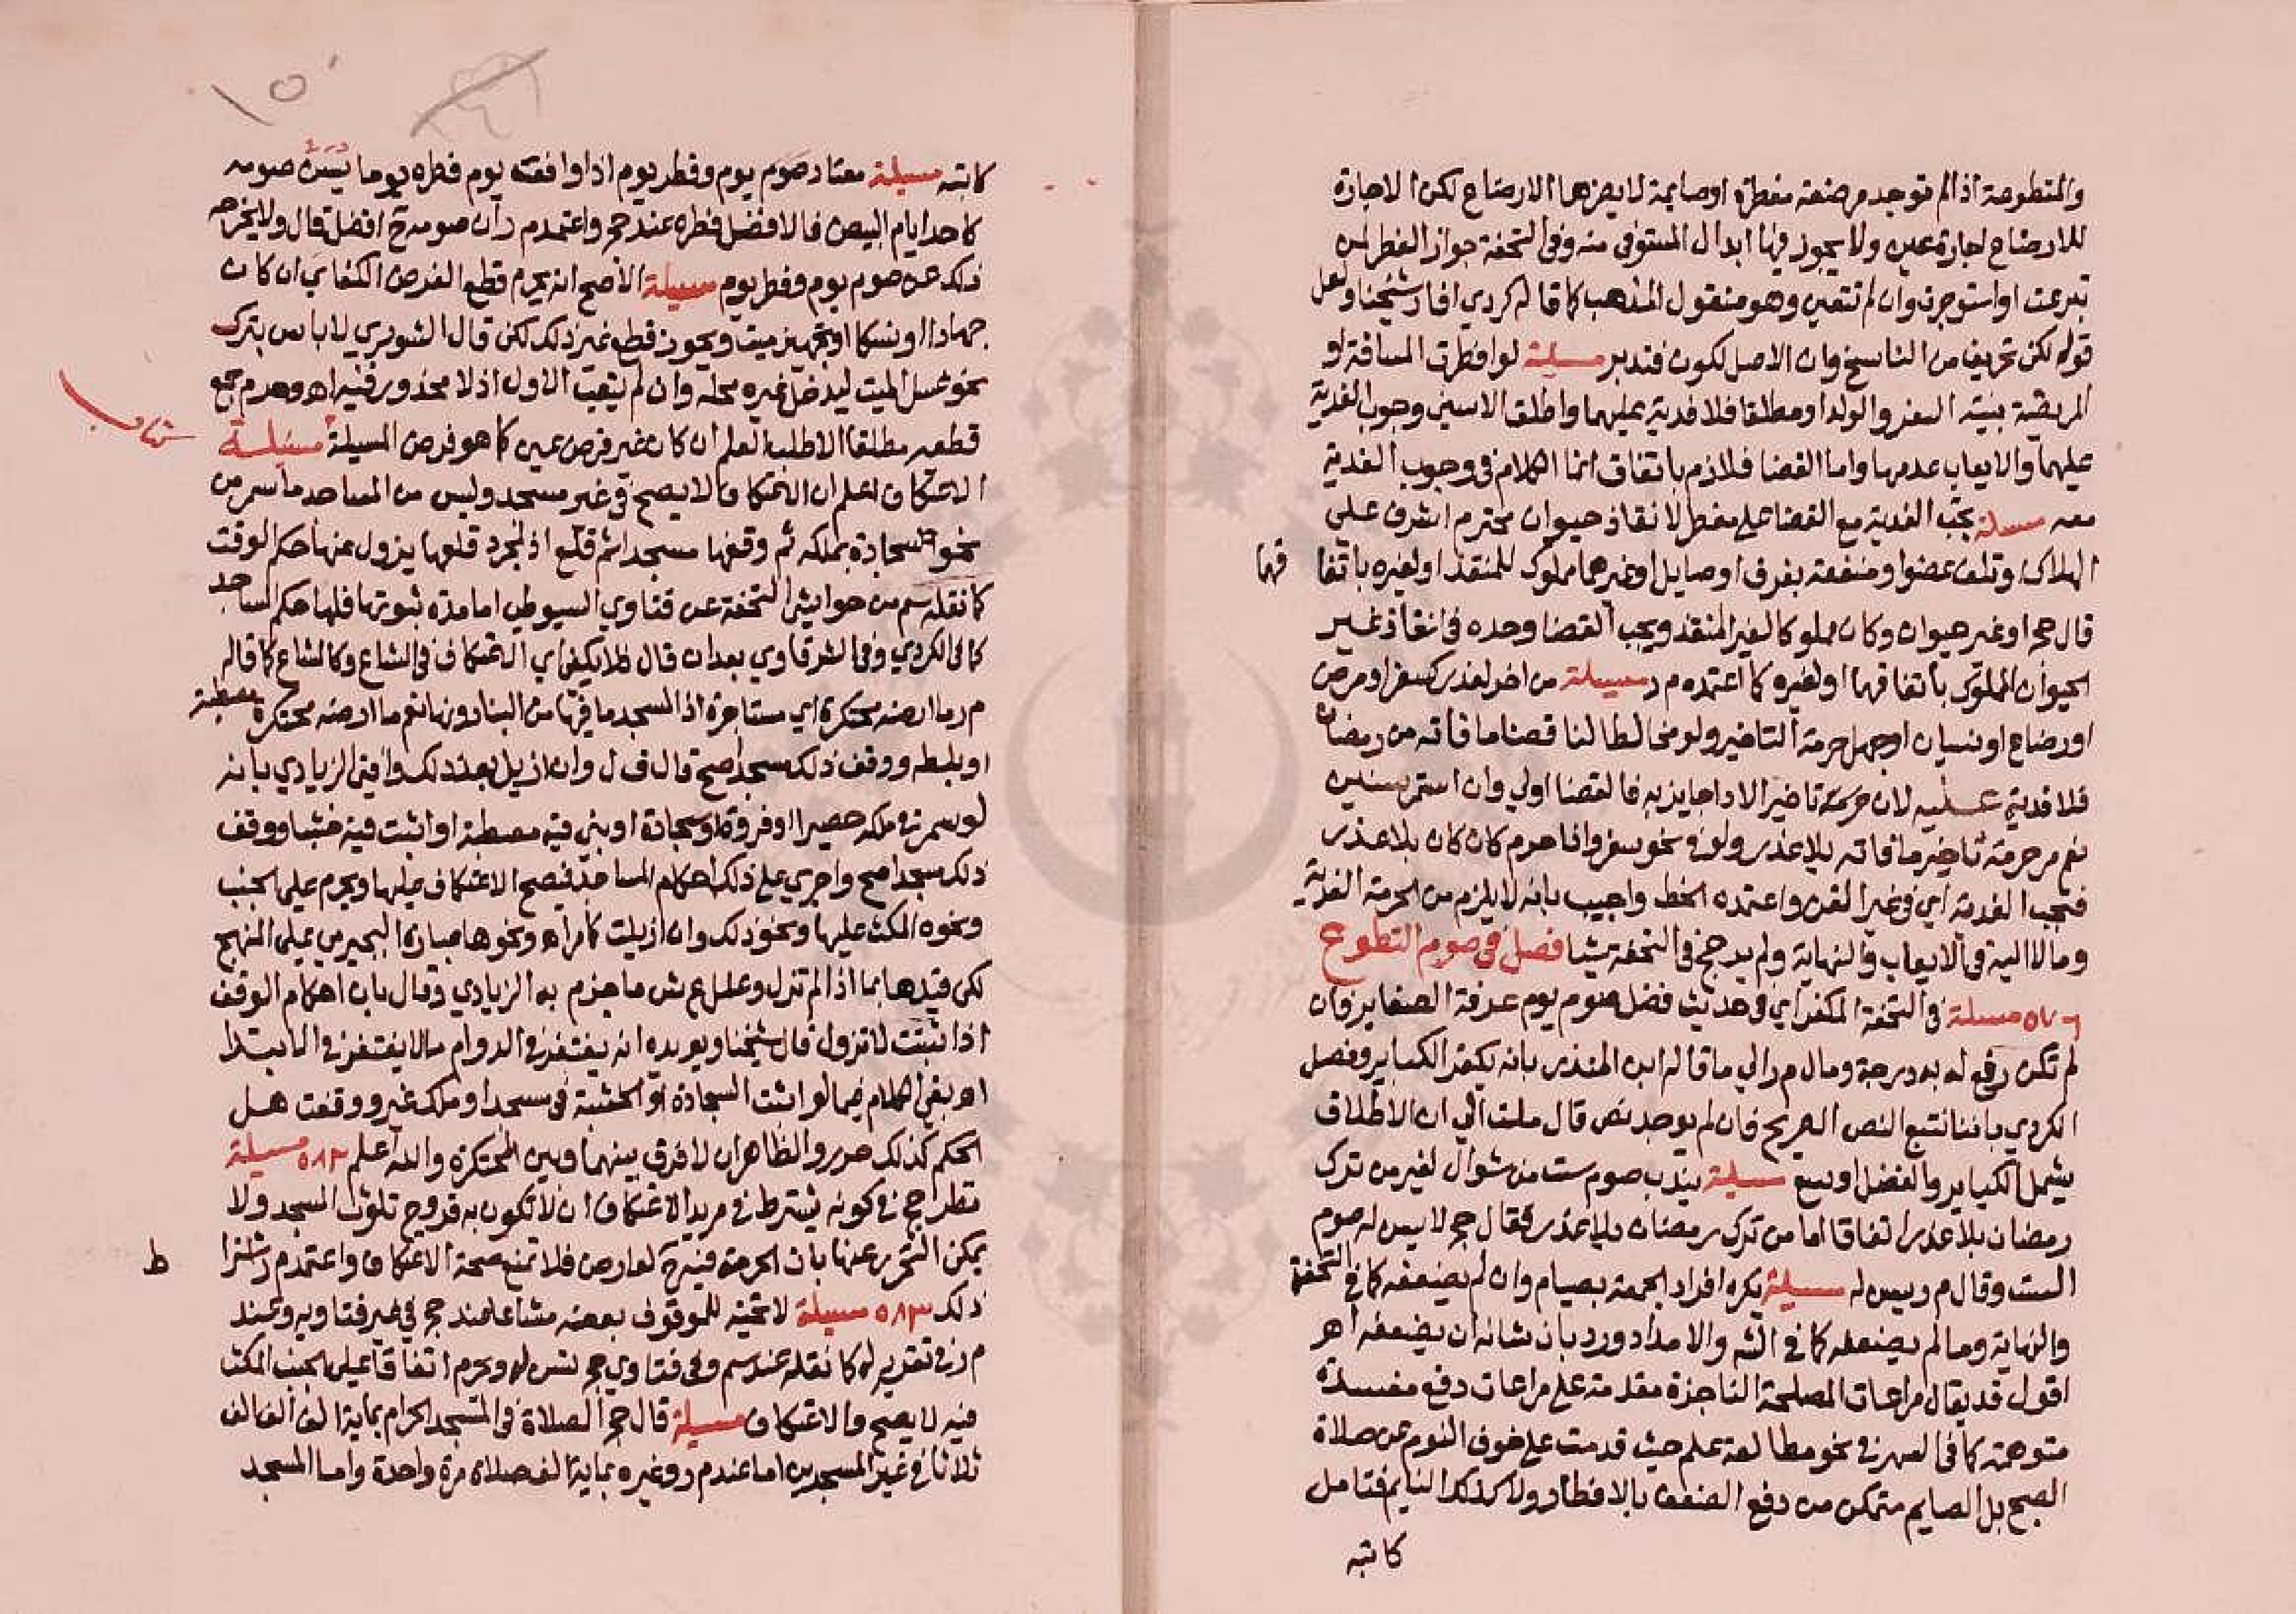 والمتطوعة اذا لم توجد مرضعة مفطرة او صايمة لا يضرها الارضاع لكن الاجارة
للارضاع اجارة عين ولا يجوز فيها ابدال المستوفى منه وفي التحفة جواز الفطر لمن
تبرعت او استوجرت وان لم تتعين وهو منقول المذهب كما قاله كردي افاد شيخنا ولعل
قوله لكن تحريف من الناسخ وان الاصل لكون فتدبر مسيلة لو افطرت المسافرة او
المريضة بنية السفر والولد او مطلقا فلا فدية عليهما واطلق الاسنى وجوب الفدية
عليهما والايعاب عدمها واما القضا فلازم باتفاق انما الكلام في وجوب الفدية
معه مسيلة تجب الفدية مع القضا على مفطر لانقاذ حيوان محترم اشرف على
الهلاك او تلف عضو او منفعته بغرق او صايل او غيرهما مملوك للمنقذ او لغيره باتفا قهما
قال حج او غير حيوان وكان مملوكا لغير المنقذ ويجب القضا وحده في انقاذ غير
الحيوان المملوك باتفاقهما او لغيره كما اعتمده م ر مسيلة من اخر لعذر كسفر او مرض
او رضاع او نسيان او جهل حرمة التاخير ولو مخالطا لنا قضا ما فاته من رمضان
فلا فدية عليه لان حرمة تاخير الادا جايز به فالقضا اولى وان استمر سنين
نعم مر حرمة تاخير ما فاته بلا عذر ولو في نحو سفر واذا حرم كان كان بلا عذر
فتجب الفدية اي في غير القن واعتمده الخط واجيب بانه لا يلزم من الحرمة الفدية
ومالا اليه في الايعاب والنهاية ولم يرجح في التحفة شيا فصل في صوم التطوع
مسيلة في التحفة المكفر اي في حديث فضل صوم يوم عرفة الصغاير فان
لم تكن رفع له به درجة ومال م ر الى ما قاله ابن المنذر بانه يكفر الكباير وفصل
الكردي باننا نتبع النص الصريح فان لم يوجد نص قال ملت الى ان الاطلاق
يشمل الكباير والفضل اوسع مسيلة يندب صوم ست من شوال لغير من ترك
رمضان بلا عذر اتفاقا اما من ترك رمضان بلا عذر فقال حج لا يسن له صوم
الست وقال م ر يسن له مسيلة يكره افراد الجمعة بصيام وان لم يضعفه كما في التحفة
والنهاية وما لم يضعفه كما في الشر والامداد ورد بان شانه ان يضعفه اهر
اقول قد يقال مراعات المصلحة الناجزة مقدمة على مراعات دفع مفسدة
متوهمة كما في السهر في نحو مطالعة علم حيث قدمت على خوف النوم عن صلاة
الصبح بل الصايم متمكن من دفع الضعف بالافطار ولا كذلك النايم فتامل
كاتبه
١٥٠
كاتبه مسيلة معتاد صوم يوم وفطر يوم اذا وافق يوم فطره يوما يسن صومه
كاحد ايام البيض فالافضل فطره عند حج واعتمد م ر ان صومه ح افضل قال ولا يخرجه
ذلك عن صوم يوم وفطر يوم مسيلة الاصح انه يحرم قطع الفرض الكفاي ان كان
جهادا او نسكا او تجهيز ميت ويجوز قطع غير ذلك لكن قال الشوبري لا باس بترك
نحو غسل الميت ليدخل غيره محله وان لم يتعب الاول اذ لا محذور فيه اهر وحرم جمع
قطعه مطلقا الا طلب العلم ان كان غير فرض عين كما هو فرض المسيلة مسيلة
الاعتكاف اعلم ان الاعتكاف لا يصح في غير مسجد وليس من المساجد ما سمر من
نحو سجادة بملكه ثم وقفها مسجدا ثم قلع اذ لمجرد قلعها يزول عنها حكم الوقف
كما نقله سم من حواشي التحفة عن فتاوي السيوطي اما مدة ثبوتها فلها حكم المساجد
كما في الكردي وفي الشرقاوي بعد ان قال فلا يكفي اي الاعتكاف في المشاع وكالمشاع كما قاله
م ر ما ارضه محتكرة اي مستاجرة اذ المسجد ما فيها من البنا دونها نعم ما ارضه محتكرة مصطبة
او بلطه ووقف ذلك مسجدا صح قال ق ل وان ازيل بعد ذلك وافتى الزيادي بانه
لو سمر في ملكه حصيرا او فروة او سجادة او بنى فيه مصطبة او اثبت فيه خشبا ووقف
ذلك مسجدا صح واجري على ذلك احكام المساجد فيصح الاعتكاف عليها ويحرم على الجنب
ونحوه المكث عليها ونحو ذلك وان ازيلت كما مر اهر ونحوها عبارة البجيرمي على المنهج
لكن قيدها بما اذا لم تزل وعلل ع ش ما جزم به الزيادي وقال بان احكام الوقف
اذا ثبتت لا تزول قال شيخنا ويويده انه يغتفر في الدوام مالا يغتفر في الابتدا
اهر بقي الكلام فيما لو اثبت السجادة او الخشبة في مسجد او ملك غير ووقفت هل
الحكم كذلك حرر والظاهر ان لا فرق بينهما وبين المحتكرة والله اعلم ٥٨٢ مسيلة
نظر حج في كونه يشترط في مريد الاعتكاف ان لا تكون به قروح تلوث المسجد ولا
يمكن التحرز عنها بان الحرمة فيه ح لعارض فلا تمنع صحة الاعتكاف واعتمد م ر شرط
ذلك ٥٨٣ مسيلة لا تحية للموقوف بعضه مشاعا عند حج في غير فتاويه وعند
م ر في تقرير له كما نقله عنه سم وفي فتاوي حج تسن له ويحرم اتفاقا على الجنب المكث
فيه لا يصح والاعتكاف مسيلة قال حج الصلاة في المسجد الحرام بماية الف الف الف
ثلاثا في غير المسجدين اما عند م ر وغيره بماية الف صلاة مرة واحدة واما المسجد
ط